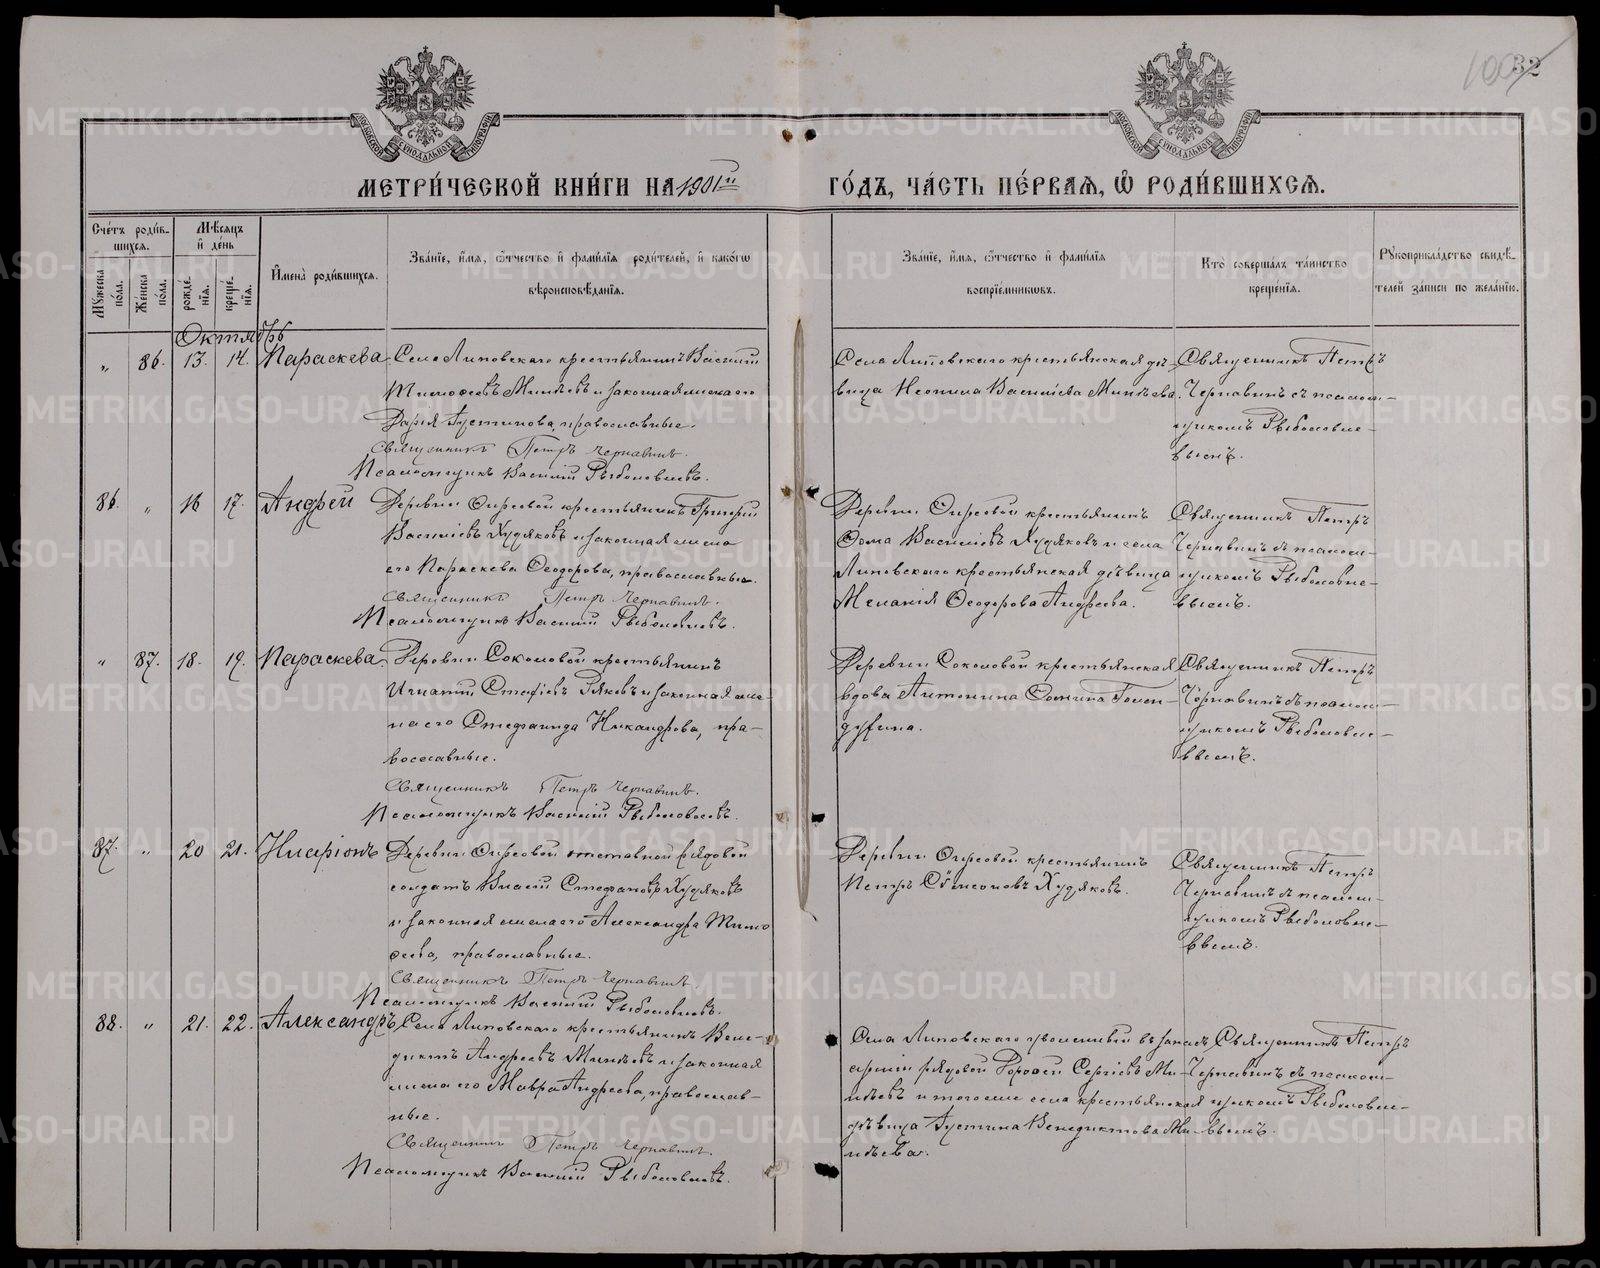 1003
32
МОСКОВСКОЙ СѴНОДАЛЬНОЙ ТИПОГРАФІИ
МОСКОВСКОЙ СѴНОДАЛЬНОЙ ТИПОГРАФІИ
МЕТРИ́ЧЕСКОЙ КНИ́ГИ НА 1901й ГО́ДЪ, ЧА́СТЬ ПЕ́РВАѦ, Ѽ РОДИ́ВШИХСѦ.
Сче́тъ роди́в-
шихсѧ.
Мꙋ́жеска по́ла.
Же́нска по́ла.
Мѣ́сѧцъ
и҆ де́нь
рожде́-
нїѧ.
креще́-
нїѧ.
И҆мена̀ роди́вшихсѧ.
Зва́нїе, и҆́мѧ, ѻ҆́тчество и҆ фами́лїѧ роди́телей, и҆ како́гѡ
вѣроисповѣ́данїѧ.
Зва́нїе, и҆́мѧ, ѻ҆́тчество и҆ фами́лїѧ
воспрїе́мникѡвъ.
Кто̀ соверша́лъ та́инство
креще́нїѧ.
Рꙋкоприкла́дство свидѣ́-
телей за́писи по жела́нїю.
Октябрь
„ 86. 13. 14. Параскева
Села Липовскаго крестьянинъ Василій
Тимофеевъ Минѣевъ и законная жена его
Дарія Іустинова, православные.
Священникъ Петръ Чернавинъ.
Псаломщикъ Василій Рыболовлевъ.
Села Липовскаго крестьянская дѣ-
вица Неонила Василіева Минѣева.
Священникъ Петръ
Чернавинъ съ псалом-
щикомъ Рыболовле-
вымъ.
86. „ 16 17. Андрей
Деревни Фирсовой крестьянинъ Григорій
Василіевъ Худяковъ и законная жена
его Параскева Ѳеодорова, православные.
Священникъ Петръ Чернавинъ.
Псаломщикъ Василій Рыболовлевъ.
Деревни Фирсовой крестьянинъ
Ѳома Василіевъ Худяковъ и села
Липовскаго крестьянская дѣвица
Меланія Ѳеодорова Андреева.
Священникъ Петръ
Чернавинъ съ псалом-
щикомъ Рыболовле-
вымъ.
„ 87. 18. 19. Параскева
Деревни Соколовой крестьянинъ
Игнатій Ряковъ и законная же-
на его Никандрова, пра-
вославные.
Священникъ Петръ Чернавинъ.
Псаломщикъ Василій Рыболовлевъ.
Деревни Соколовой крестьянская
вдова Антонина Ѳомина Голен-
духина.
Священникъ Петръ
Чернавинъ съ псалом-
щикомъ Рыболовле-
вымъ.
87. „ 20 21. Иларіонъ
Деревни Фирсовой отставной рядовой
солдатъ Власій Стефановъ Худяковъ
и законная жена его Александра Тимо
феева, православные.
Священникъ Петръ Чернавинъ.
Псаломщикъ Василій Рыболовлевъ.
Деревни Фирсовой крестьянинъ
Петръ Сѵмеоновъ Худяковъ.
Священникъ Петръ
Чернавинъ съ псалом-
щикомъ Рыболовле-
вымъ.
88. „ 21. 22. Александръ
Села Липовскаго крестьянинъ Вене-
диктъ Андреевъ Минѣевъ и законная
жена его Мавра Андреева, православ-
ные.
Священникъ Петръ Чернавинъ.
Псаломщикъ Василій Рыболовлевъ.
Села Липовскаго уволенный въ запасъ
арміи рядовой Дороѳей Сергіевъ Ми-
нѣевъ и того же села крестьянская
дѣвица Іустина Венедиктова Ми-
нѣева.
Священникъ Петръ
Чернавинъ съ псалом-
щикомъ Рыболовле-
вымъ.
METRIKI.GASO-URAL.RU